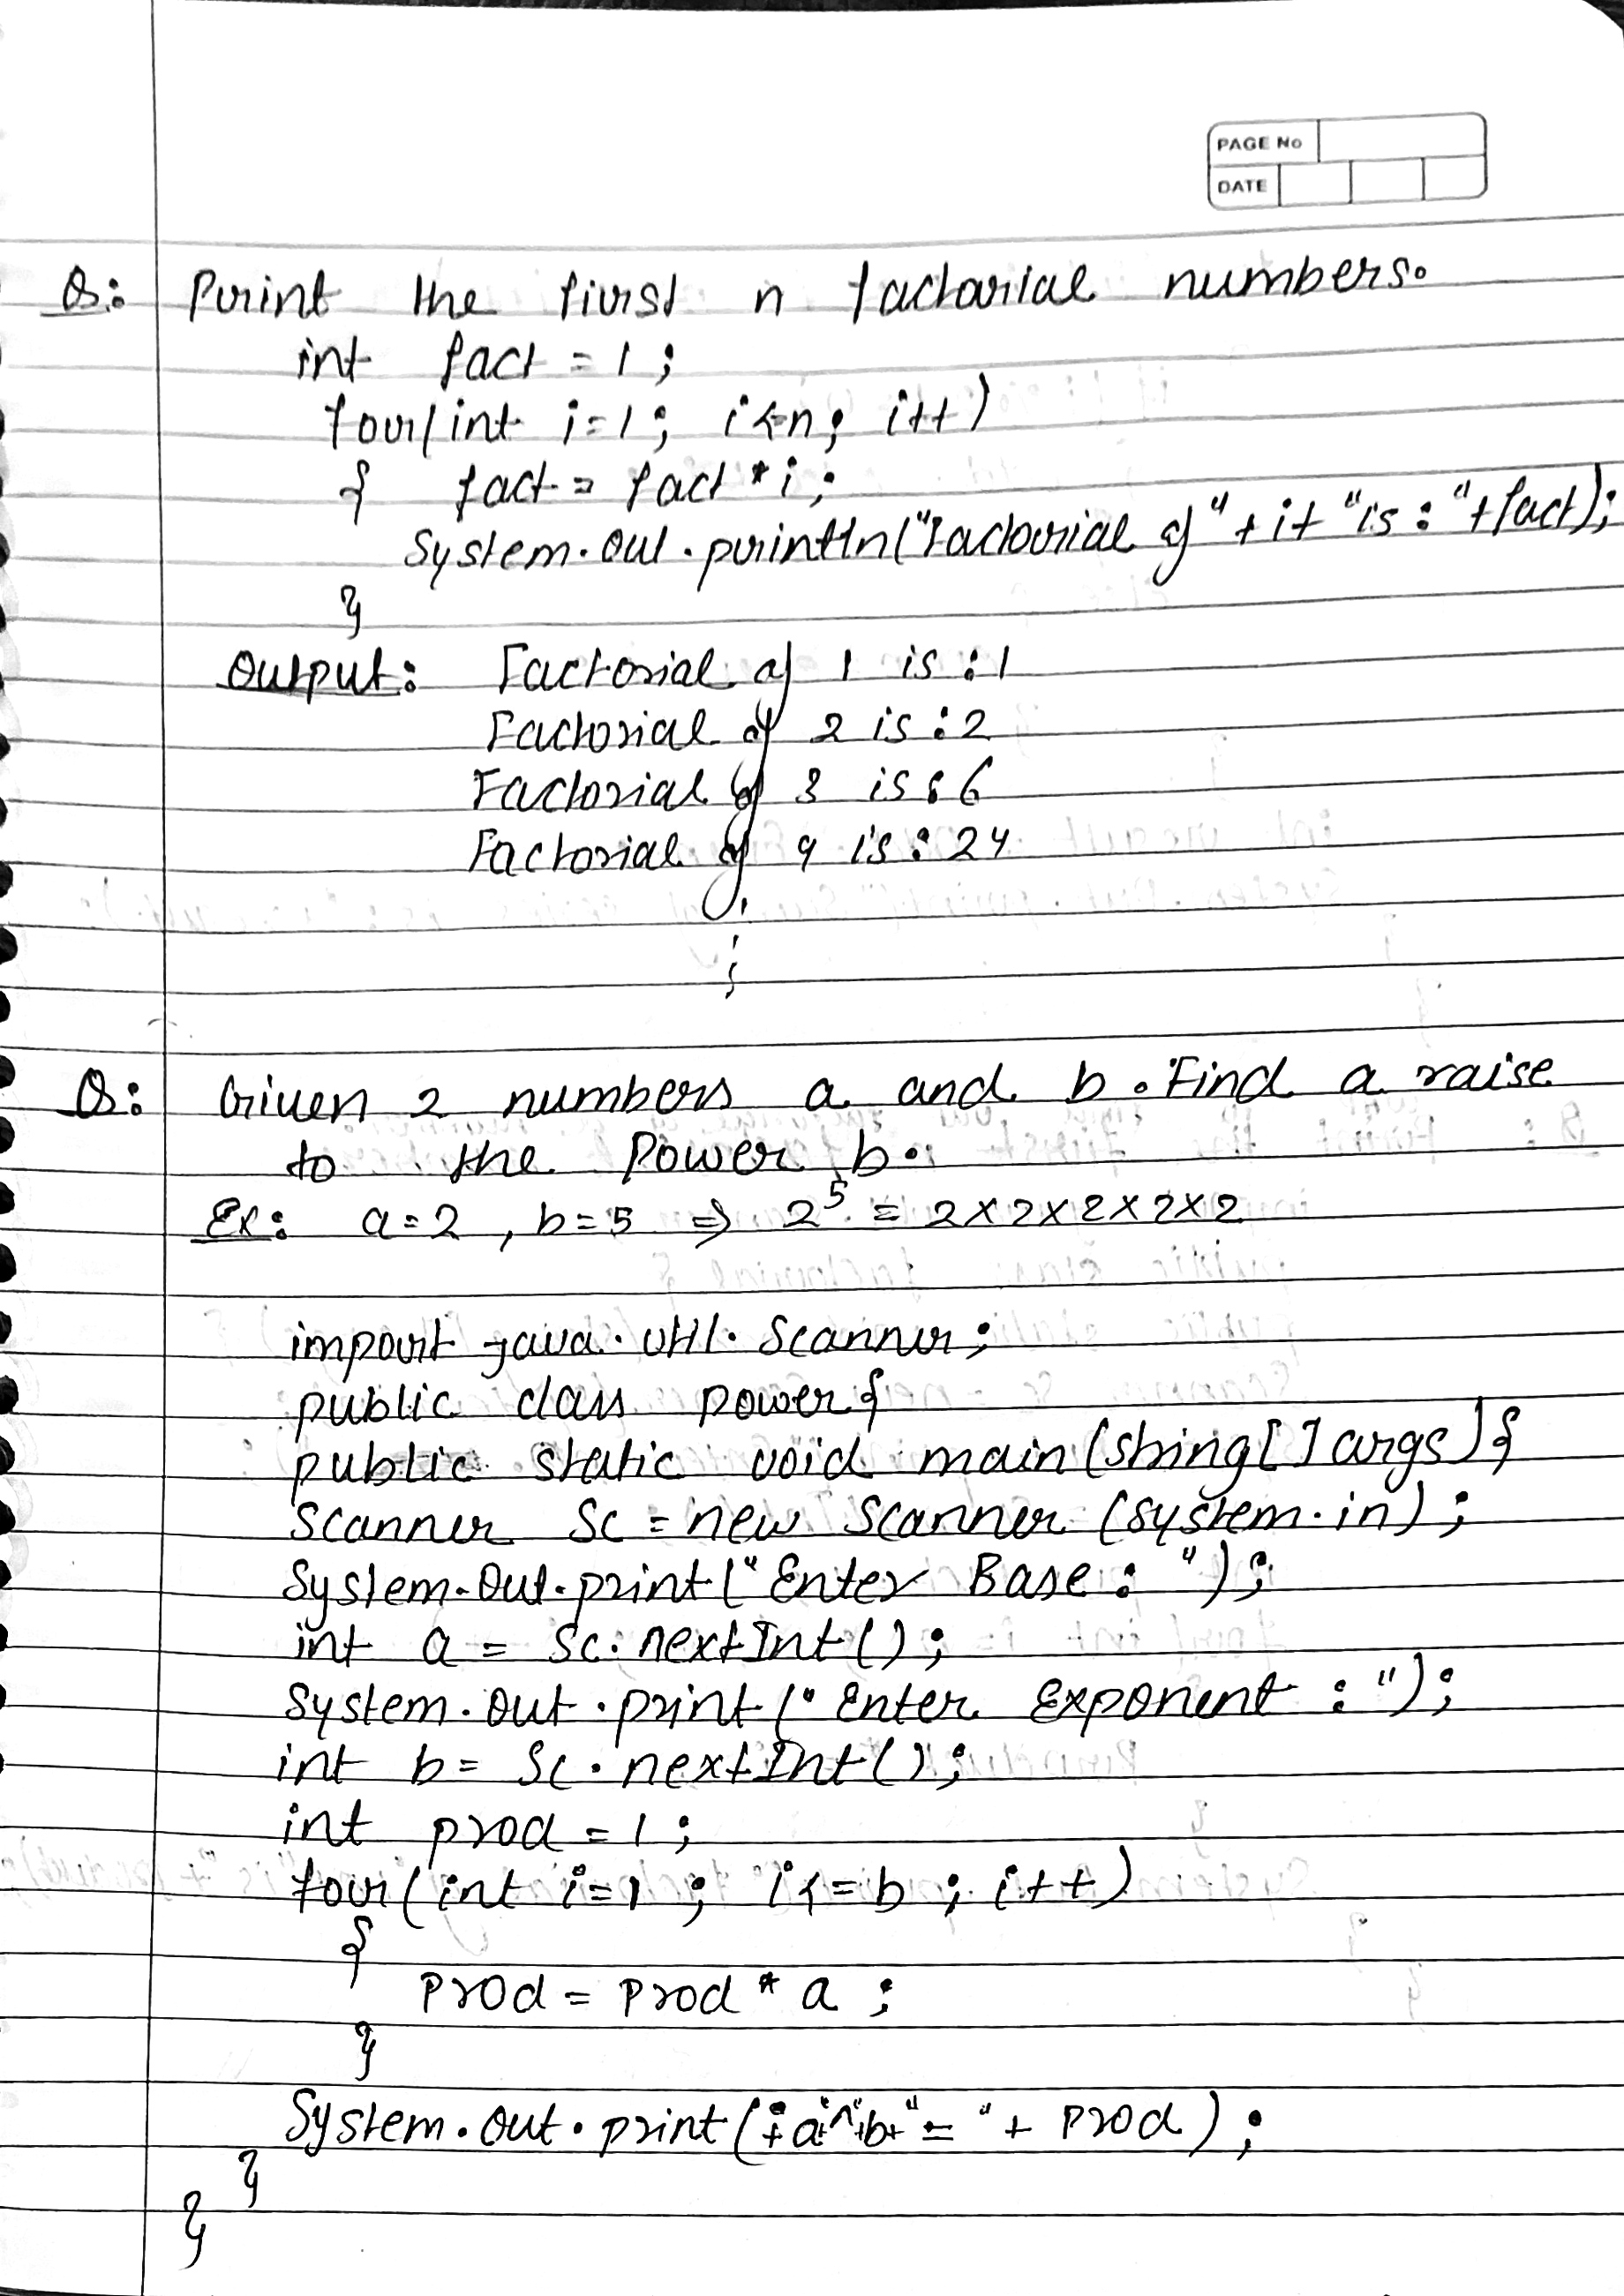 PAGE No
DATE
Q: Print the first n factorial numbers.
int fact = 1;
for(int i=1; i<=n; i++)
{ fact = fact * i;
System.out.println("Factorial of" + i + "is : "+fact);
}
Output: Factorial of 1 is : 1
Factorial of 2 is : 2
Factorial of 3 is : 6
Factorial of 4 is : 24
Q: Given 2 numbers a and b. Find a raise
to the Power b.
Ex: a=2, b=5 ⇒ 2⁵ = 2×2×2×2×2
import java.util.Scanner;
public class power{
public static void main(string[] args){
Scanner Sc = new Scanner (System.in);
System.out.print("Enter Base : ");
int a = Sc.nextInt();
System.out.print("Enter Exponent : ");
int b = Sc.nextInt();
int prod = 1;
for(int i=1 ; i<=b ; i++)
{
Prod = Prod * a ;
}
System.out.print( +a+"^"+b+" = "+ Prod);
}
}